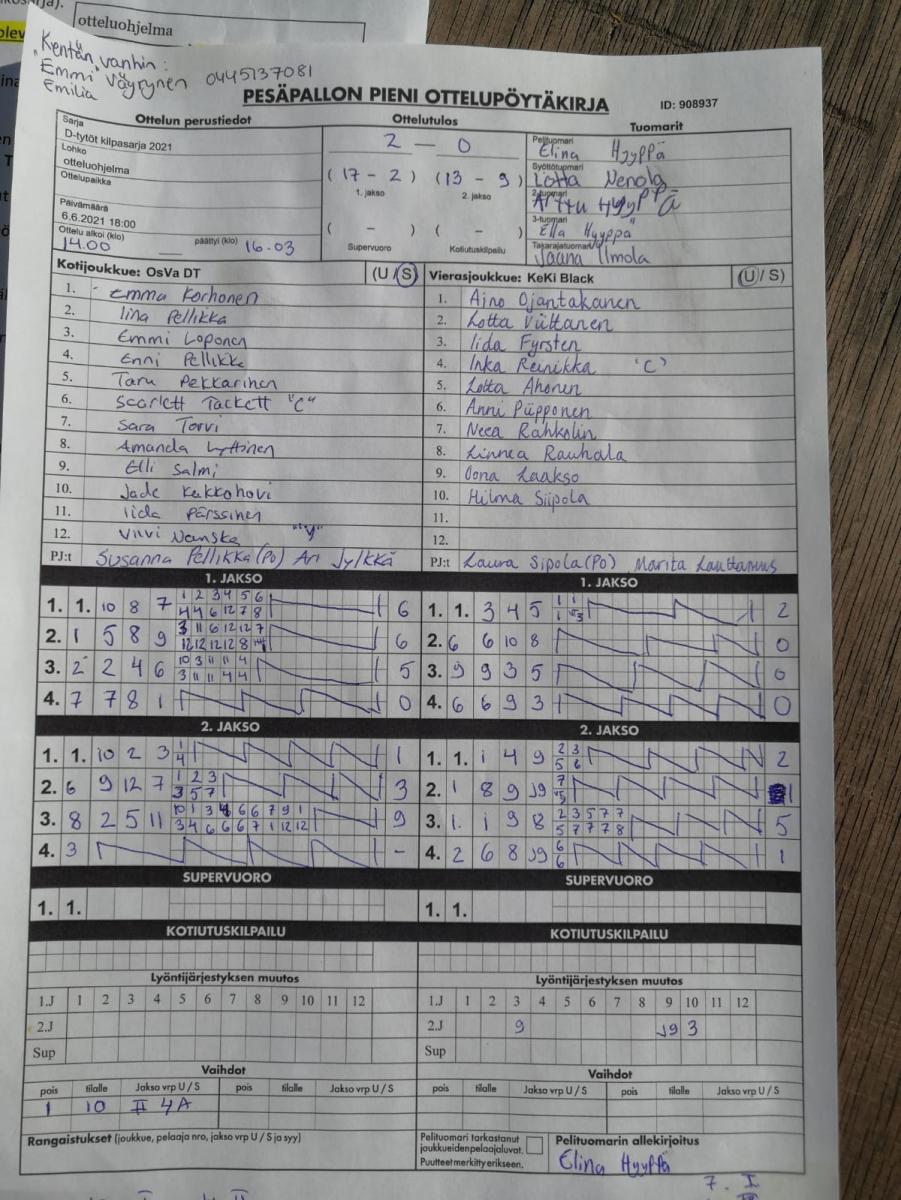 otteluohjelma
"Kentän vanhin:
Emmi Väyrynen 0445137081
Emilia
PESÄPALLON PIENI OTTELUPÖYTÄKIRJA ID: 908937
Ottelun perustiedot
Sarja
D-tytöt kilpasarja 2021
Lohko
otteluohjelma
Ottelupaikka
Päivämäärä
6.6.2021 18:00
Ottelu alkoi (klo) päättyi (klo)
14.00 16.03
Ottelutulos
2 – 0
(17 - 2) (13 - 9)
1. jakso 2. jakso
( - ) ( - )
Supervuoro Kotiutuskilpailu
Tuomarit
Pelituomari
Elina Hyyppä
Syöttötuomari
Lotta Nenola
2-tuomari
Arttu Hyyppä
3-tuomari
Ella Hyyppä
Takarajatuomari
Jaana Ilmola
Kotijoukkue: OsVa DT (U / S)
1. Emma Korhonen
2. Iina Pellikka
3. Emmi Loponen
4. Enni Pellikka
5. Taru Pekkarinen
6. Scarlett Tackett "C"
7. Sara Torvi
8. Amanda Lyttinen
9. Elli Salmi
10. Jade Kukkohovi
11. Iida Pärssinen
12. Viivi Nanska "V"
PJ:t Susanna Pellikka (Po) Ari Jylkkä
Vierasjoukkue: KeKi Black (U / S)
1. Aino Ojantakanen
2. Lotta Viittanen
3. Iida Fyrsten
4. Inka Reinikka 'C'
5. Lotta Ahonen
6. Anni Piipponen
7. Neea Rahkolin
8. Linnea Rauhala
9. Oona Laakso
10. Hilma Siipola
11.
12.
PJ:t Laura Sipola (Po) Marita Lauttamus
1. JAKSO
1. 1. 10 8 7 1 2 3 4 5 6 6
4 4 6 12 7 8
2. 1 5 8 9 3 11 6 12 12 7 6
12 12 12 12 8
3. 2 2 4 6 10 3 11 11 4 5
3 11 11 4 4
4. 7 7 8 1 0
1. JAKSO
1. 1. 3 4 5 1 1 2
2. 6 6 10 8 0
3. 9 9 3 5 0
4. 6 6 9 3 0
2. JAKSO
1. 1. 10 2 3 1 1
4
2. 6 9 12 7 1 2 3 3
3 5 7
3. 8 2 5 11 10 1 3 4 6 6 7 9 1 9
3 4 6 6 6 7 1 12 12
4. 3 -
2. JAKSO
1. 1. 1 4 9 2 3 2
5 6
2. 1 8 9 J9 7 1
3. 1. 1 9 8 2 3 5 7 7 5
5 7 7 7 8
4. 2 6 8 J9 6 1
6
SUPERVUORO
1. 1.
SUPERVUORO
1. 1.
KOTIUTUSKILPAILU
KOTIUTUSKILPAILU
Lyöntijärjestyksen muutos
1.J 1 2 3 4 5 6 7 8 9 10 11 12
2.J
Sup
Lyöntijärjestyksen muutos
1.J 1 2 3 4 5 6 7 8 9 10 11 12
2.J 9 J9 3
Sup
Vaihdot
pois tilalle Jakso vrp U / S pois tilalle Jakso vrp U / S
1 10 II 4A
Vaihdot
pois tilalle Jakso vrp U / S pois tilalle Jakso vrp U / S
Rangaistukset (joukkue, pelaaja nro, jakso vrp U / S ja syy)
Pelituomari tarkastanut
joukkueiden pelaajaluvat.
Puutteet merkitty erikseen.
Pelituomarin allekirjoitus
Elina Hyyppä
7. I